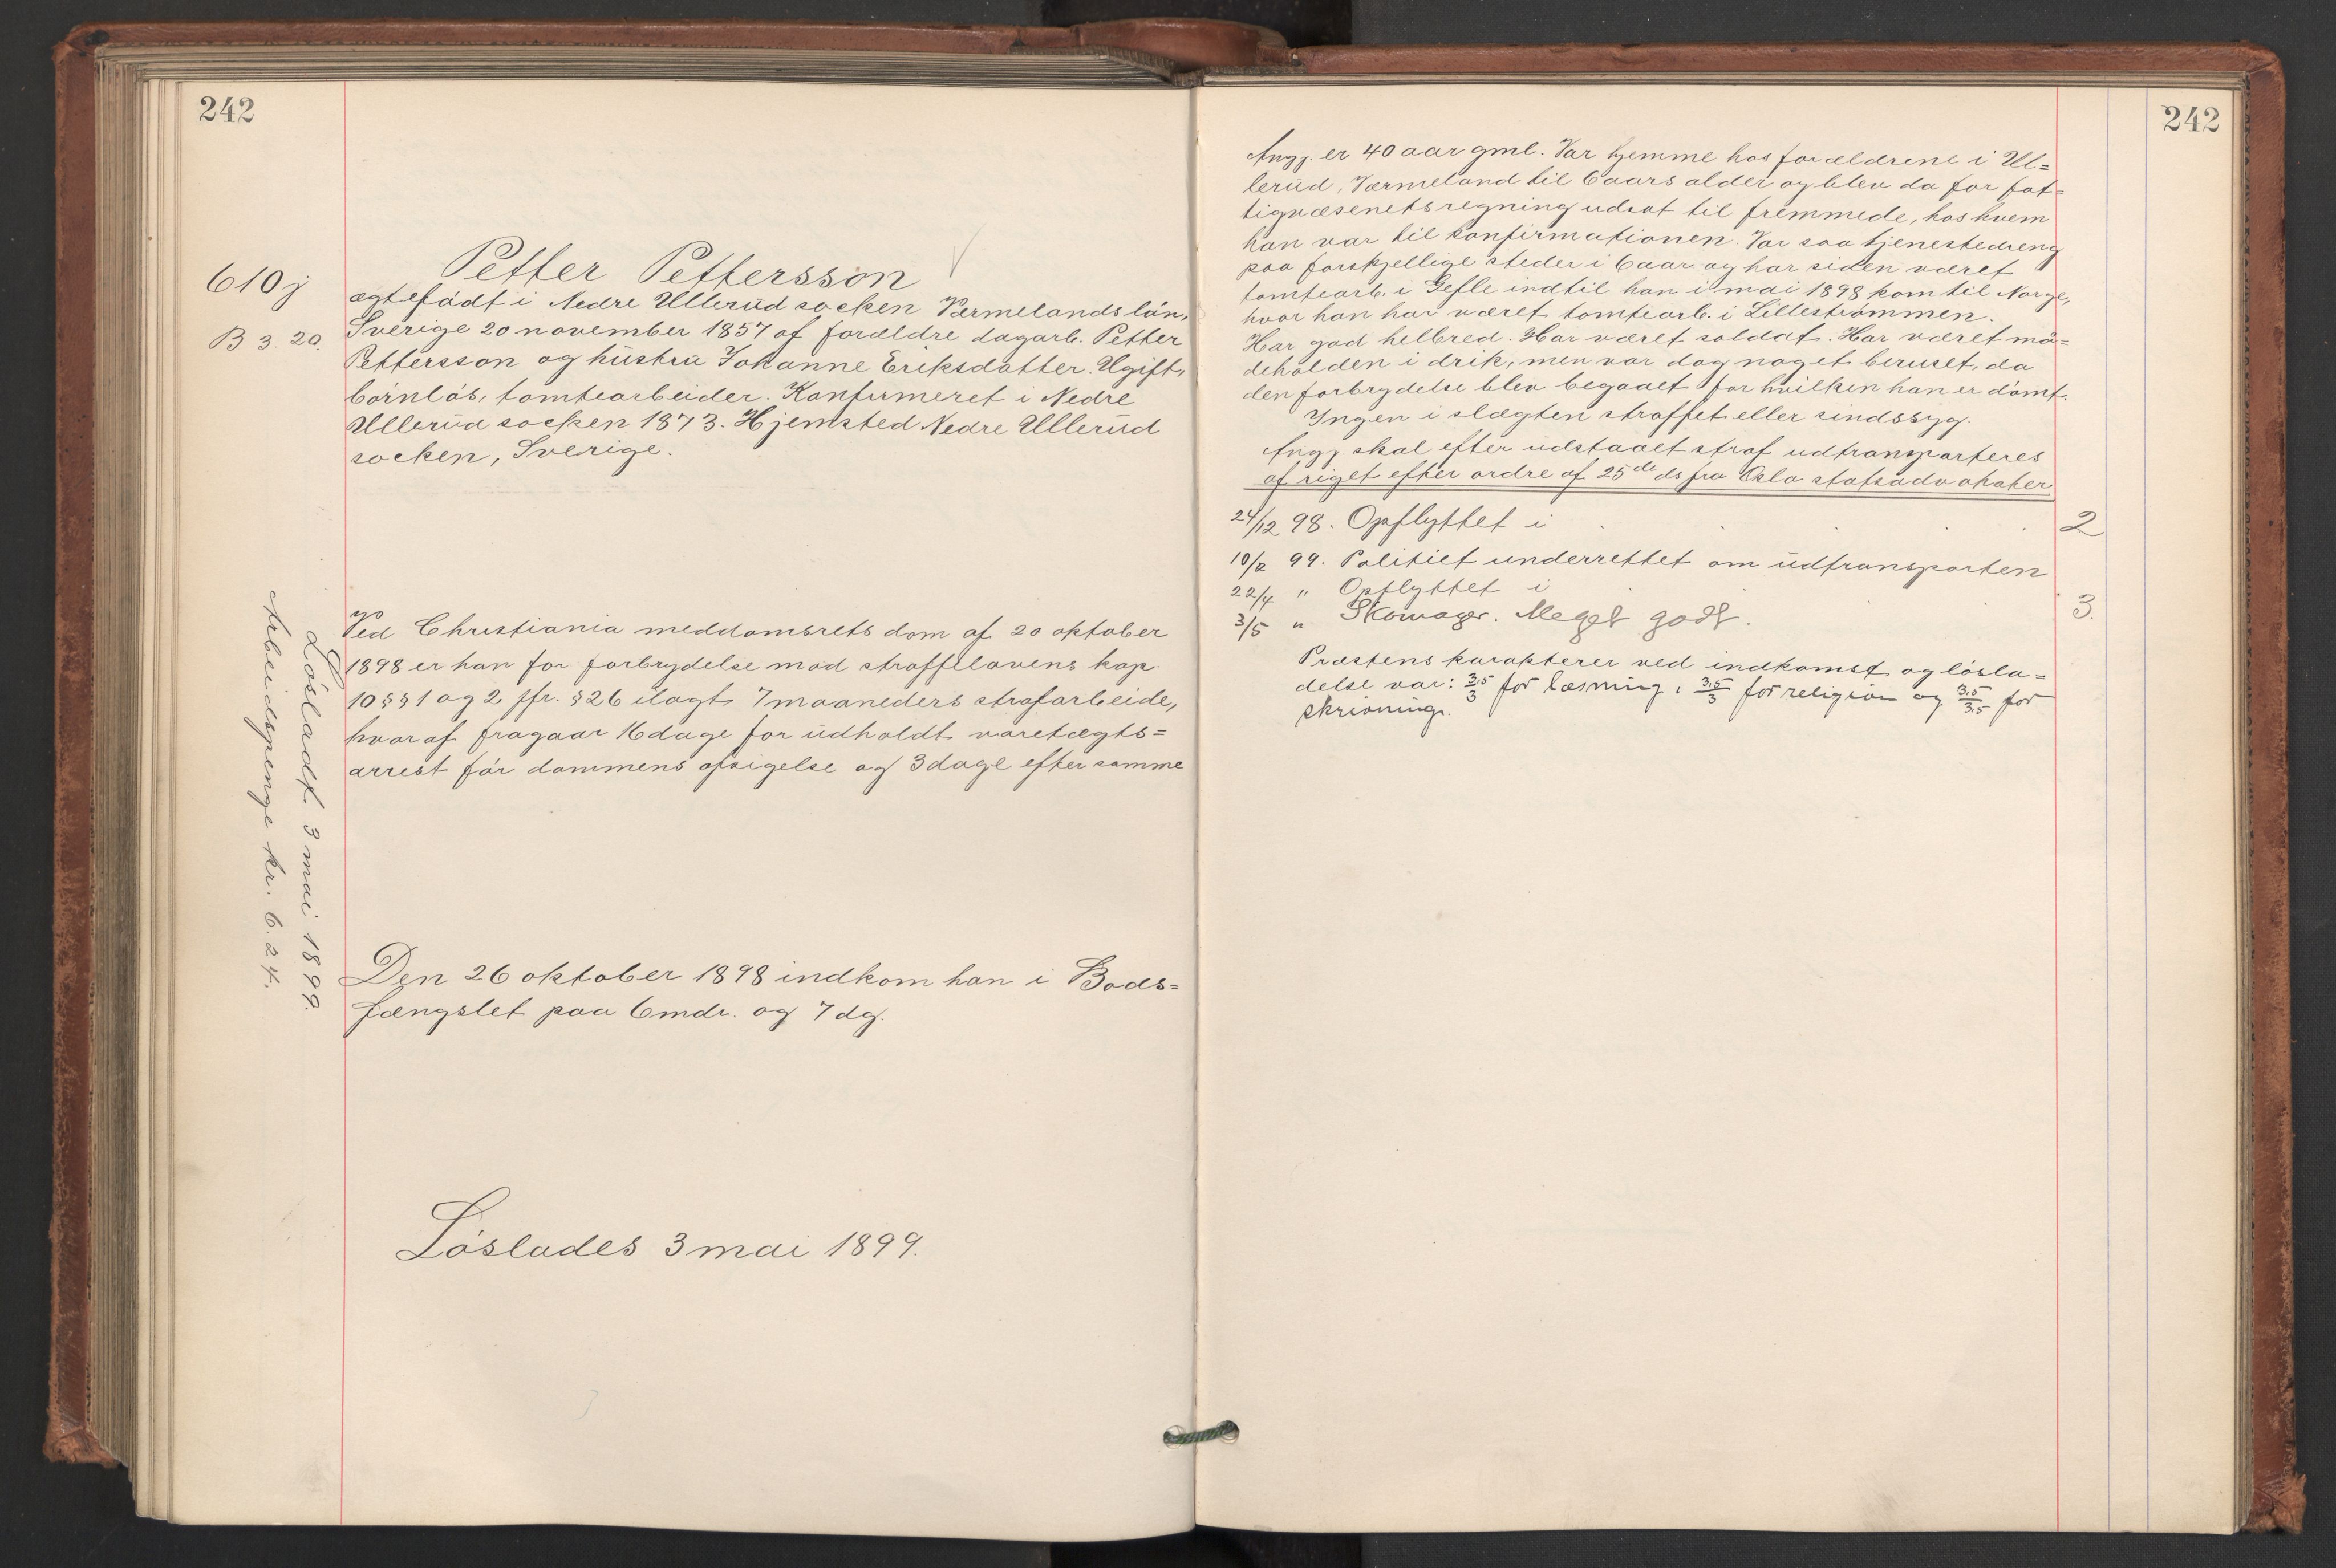 242
610 j
B 3. 20.
Petter Pettersson
ægtefødt i Nedre Ullerud socken Vermelands län,
Sverige 20 november 1857 af forældre dagarb. Petter
Pettersson og hustru Johanne Eriksdatter. Ugift,
børnløs, tomtearbeider. Konfirmeret i Nedre
Ullerud socken 1873. Hjemsted Nedre Ullerud
socken, Sverige.
Ved Christiania meddomsrets dom af 20 oktober
1898 er han for forbrydelse mod straffelovens kap.
10 §§ 1 og 2 jfr. § 26 ilagt 7 maaneders strafarbeide,
hvoraf fragaar 16 dage for udholdt varetægts=
arrest før dommens afsigelse og 3 dage efter samme
Den 26 oktober 1898 indkom han i Bods=
fængslet paa 6 mdr. og 7 dg.
Løslades 3 mai 1899.
Løsladt 3 mai 1899.
Arbeidspenge kr. 6.24.
242
Angj. er 40 aar gml. Var hjemme hos forældrene i Ul=
lerud, Værmeland til 6 aars alder og blev da for fat=
tigvæsenets regning udsat til fremmede, hos hvem
han var til konfirmationen. Var saa tjenestedreng
paa forskjellige steder i 6 aar og har siden været
tomtearb. i Gefle indtil han i mai 1898 kom til Norge,
hvor han har været tomtearb. i Lillestrømmen.
Har god helbred. Har været soldat. Har været må=
deholden i drik, men var dog noget beruset, da
den forbrydelse blev begaaet for hvilken han er dømt.
Ingen i slægten straffet eller sindssyg.
Angj skal efter udstaaet straf udtransporteres
af riget efter ordre af 25de ds fra Oslo statsadvokater
24/12 98. Opflyttet i . . . . 2
10/2 99. Politiet underrettet om udtransporten
22/4 " Opflyttet i 3.
3/5 " Skomager. Meget godt.
Præstens karakterer ved indkomst og løsla=
delse var: 3.5/3 for læsning, 3.5/3 for religion og 3.5/3.5 for
skrivning.